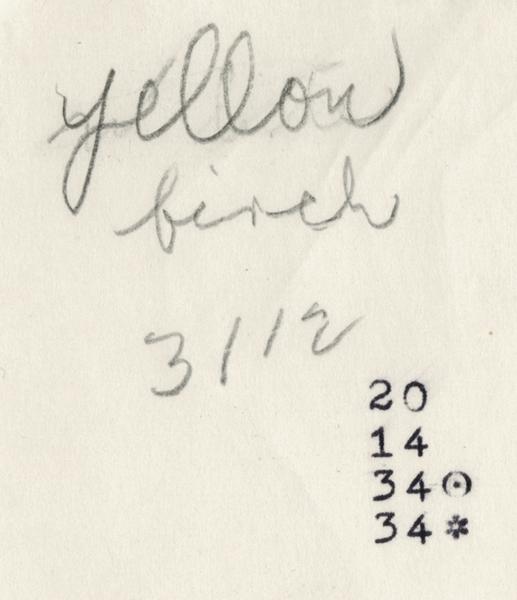 yellow
birch
3112
20
14
34⊙
34*